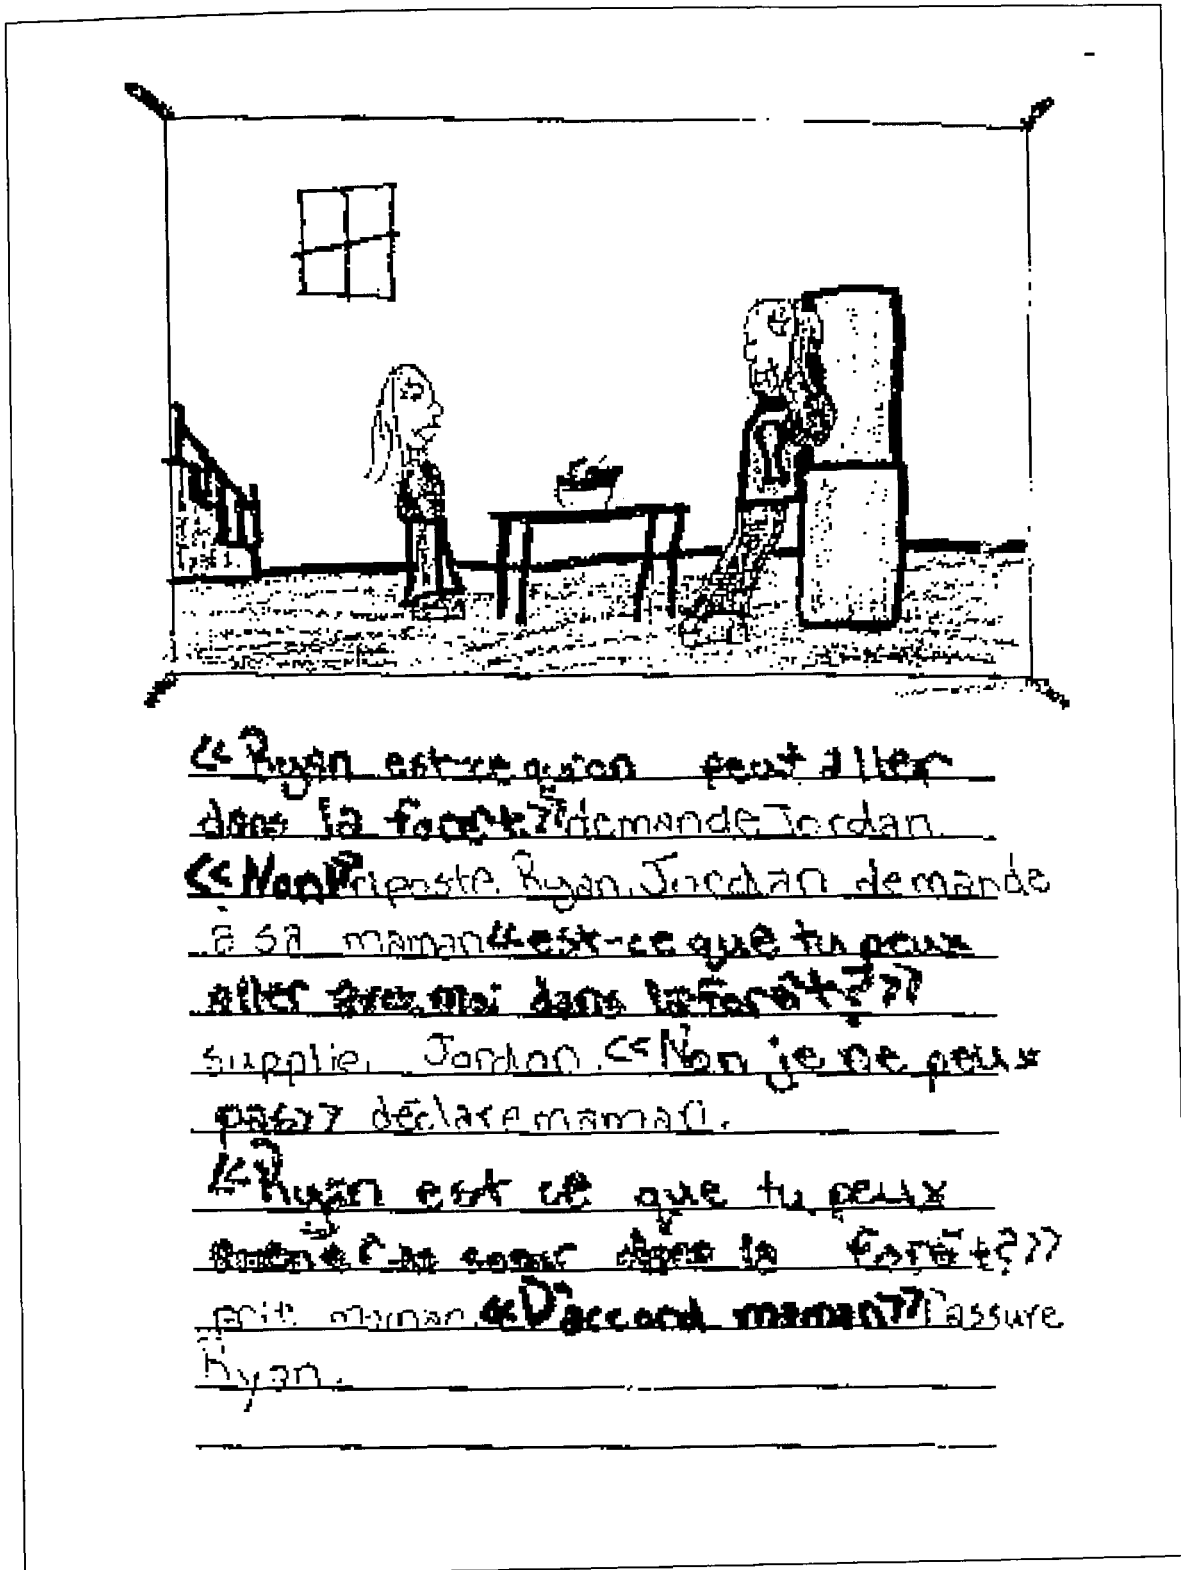 «Ryan est-ce qu'on peut aller
dans la forêt?» demande Jordan.
«Non!» riposte Ryan. Jordan demande
à sa maman «est-ce que tu peux
aller avec moi dans la forêt?»
supplie Jordan. «Non je ne peux
pas» déclare maman.
«Ryan est ce que tu peux
ta soeur dans la forêt?»
prit maman. «D'accord maman» rassure
Ryan.